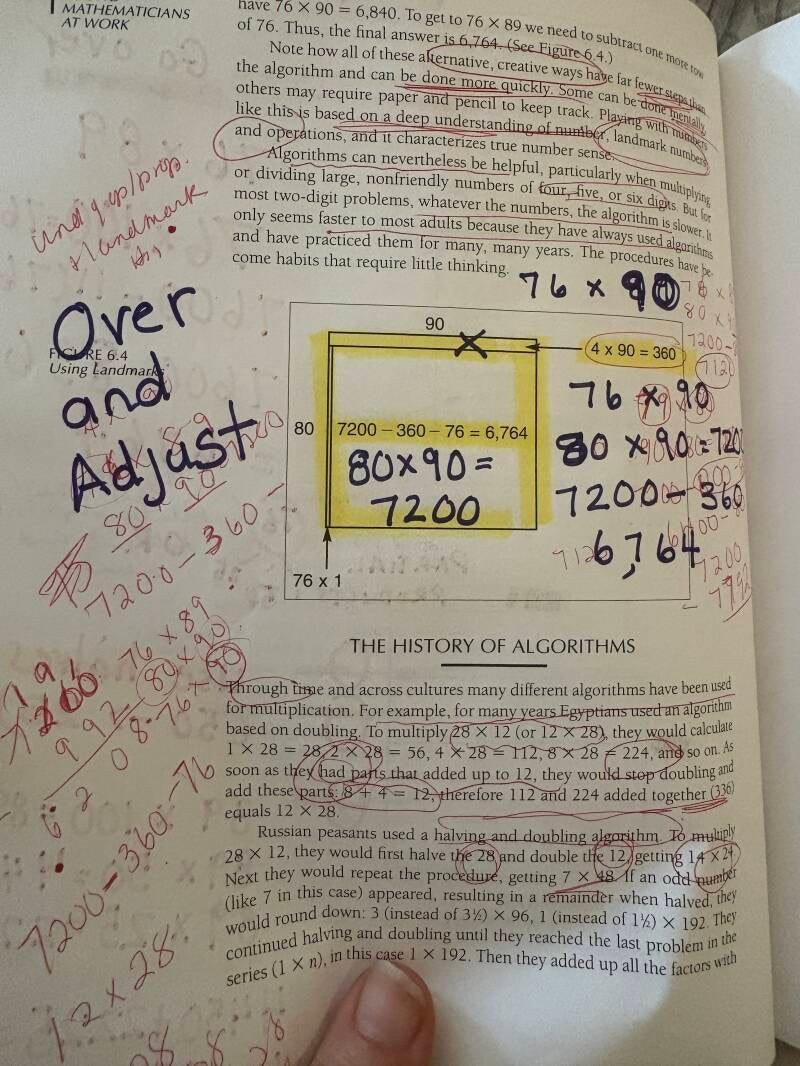 MATHEMATICIANS
AT WORK
have 76 × 90 = 6,840. To get to 76 × 89 we need to subtract one more row
of 76. Thus, the final answer is 6,764. (See Figure 6.4.)
Note how all of these alternative, creative ways have far fewer steps than
the algorithm and can be done more quickly. Some can be done mentally,
others may require paper and pencil to keep track. Playing with numbers
like this is based on a deep understanding of number, landmark numbers,
and operations, and it characterizes true number sense.
Algorithms can nevertheless be helpful, particularly when multiplying
or dividing large, nonfriendly numbers of four, five, or six digits. But for
most two-digit problems, whatever the numbers, the algorithm is slower. It
only seems faster to most adults because they have always used algorithms
and have practiced them for many, many years. The procedures have be-
come habits that require little thinking.
landmark
76 × 90
Over
and
Adjust
FIGURE 6.4
Using Landmark
90
4 x 90 = 360
80
7200 – 360 – 76 = 6,764
80×90=
7200
76 x 1
76 × 90
80 × 90 = 7200
7200 - 360
6,764
80 × 90
7200 - 360 -
76 × 89
80 × 90
7200-360-76
12 × 28
THE HISTORY OF ALGORITHMS
Through time and across cultures many different algorithms have been used
for multiplication. For example, for many years Egyptians used an algorithm
based on doubling. To multiply 28 × 12 (or 12 × 28), they would calculate
1 × 28 = 28, 2 × 28 = 56, 4 × 28 = 112, 8 × 28 = 224, and so on. As
soon as they had parts that added up to 12, they would stop doubling and
add these parts: 8 + 4 = 12, therefore 112 and 224 added together (336)
equals 12 × 28.
Russian peasants used a halving and doubling algorithm. To multiply
28 × 12, they would first halve the 28 and double the 12, getting 14 × 24.
Next they would repeat the procedure, getting 7 × 48. If an odd number
(like 7 in this case) appeared, resulting in a remainder when halved, they
would round down: 3 (instead of 3½) × 96, 1 (instead of 1½) × 192. They
continued halving and doubling until they reached the last problem in the
series (1 × n), in this case 1 × 192. Then they added up all the factors with